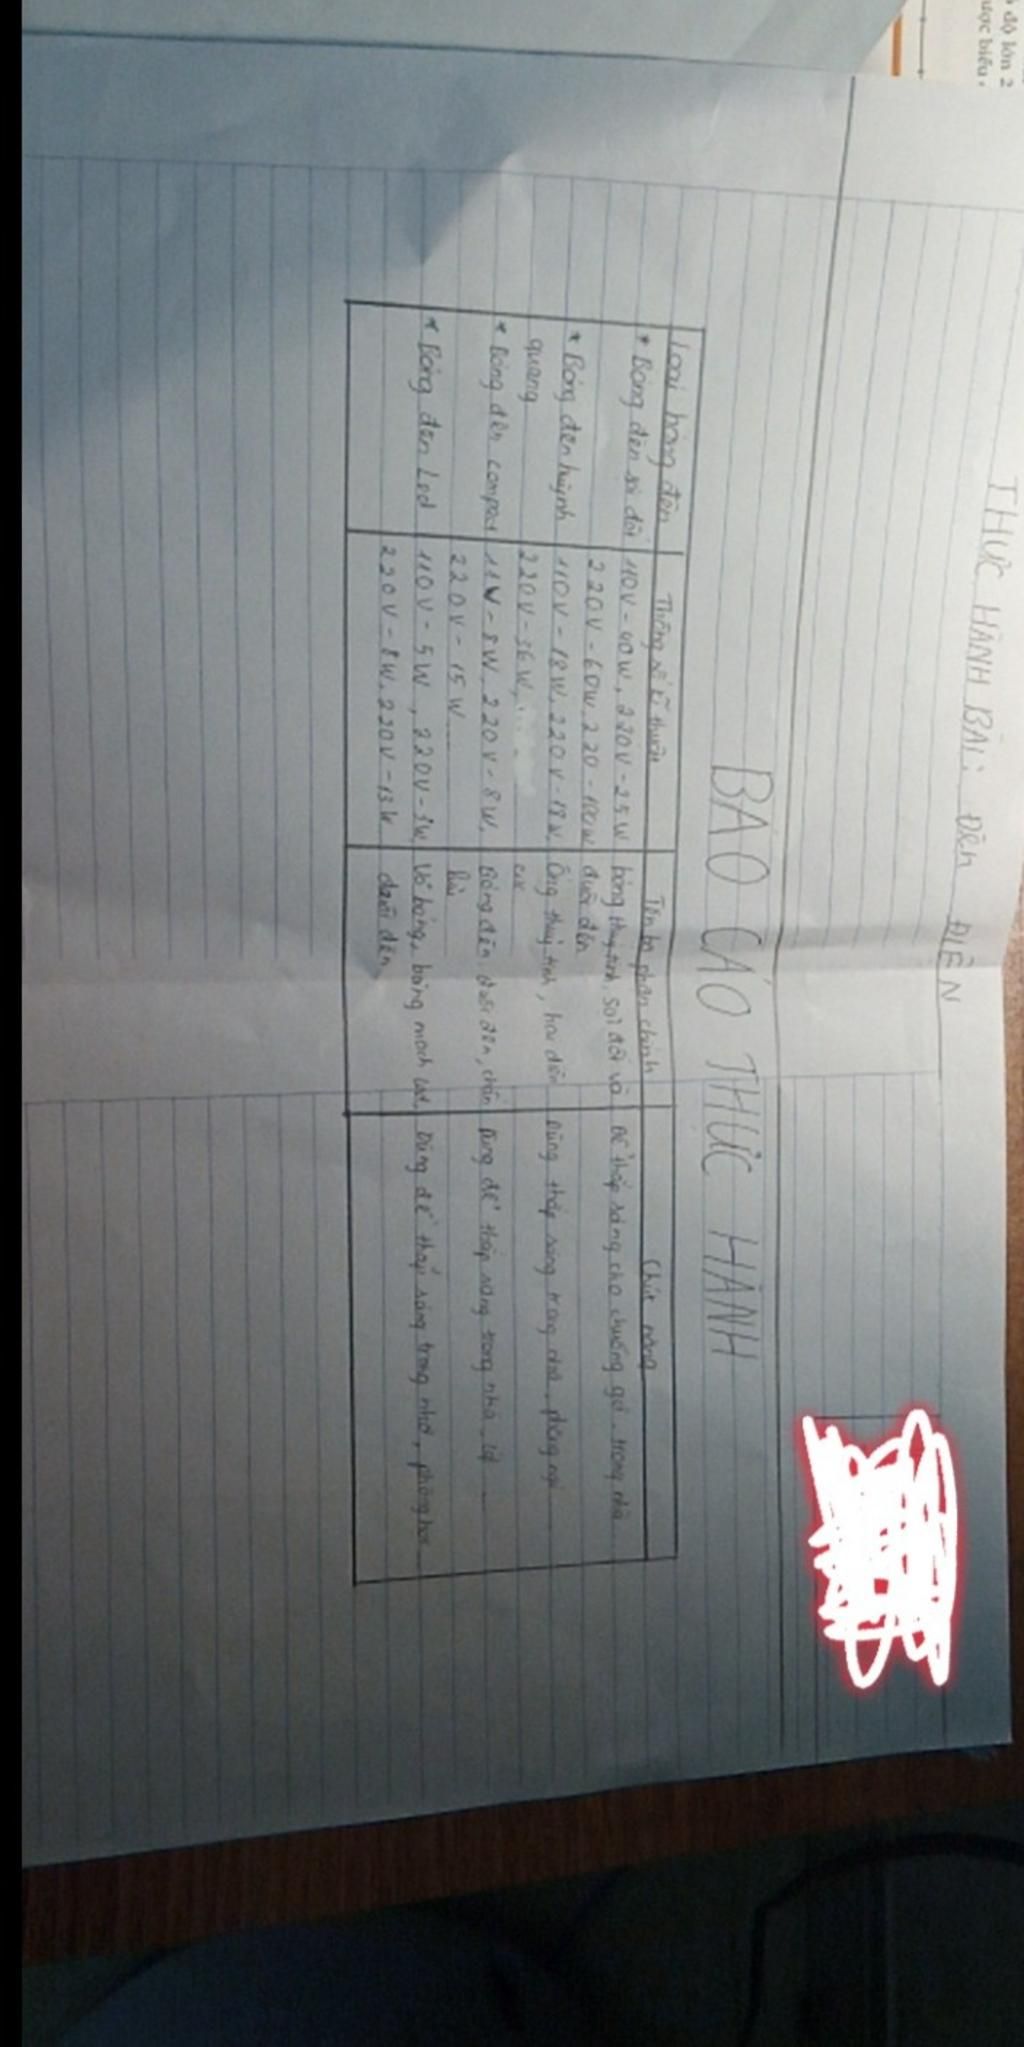 độ lớn 2
ược biểu
THỰC HÀNH BÀI: Đèn ĐIỆN
BÁO CÁO THỰC HÀNH
Loại bóng đèn
Thông số kĩ thuật
Tên bộ phận chính
Chức năng
* Bóng đèn sợi đốt
110V - 40W, 220V - 25W
220V - 60W, 220 - 100W
bóng thuỷ tinh, sợi đốt và
đuôi đèn
Để thắp sáng cho chuồng gà, trong nhà...
* Bóng đèn huỳnh
quang
110V - 18W, 220V - 18W,
220V - 36W,
Ống thuỷ tinh, hai điện
cực
Dùng thắp sáng trong nhà, phòng ngủ...
* Bóng đèn compact
11W - 8W, 220V - 8W,
220V - 15W....
Bóng đèn đuôi đèn, chấn
lưu
Dùng để thắp sáng trong nhà,
* Bóng đèn Led
110V - 5W, 220V - 5W,
220V - 8W, 220V - 13W
Vỏ bóng, bảng mạch Led,
đuôi đèn
Dùng để thắp sáng trong nhà, phòng học...